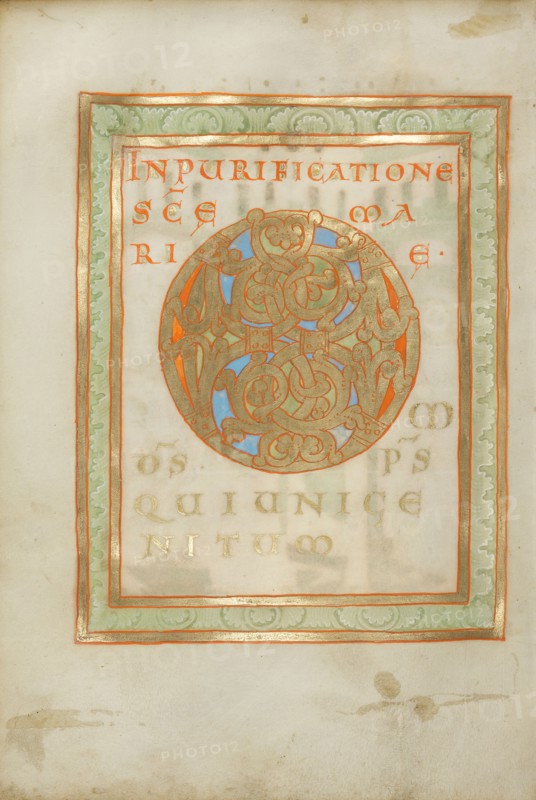 INPURIFICATIONE
SC̄E MA
RIE·
O M
Ō̄S P̄S
QUIUNIGE
NITUM
PHOTO12